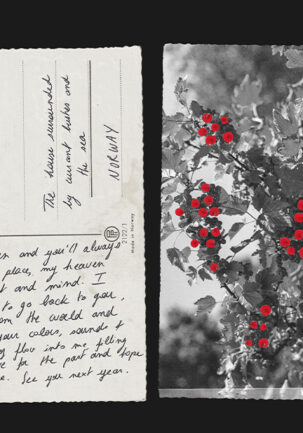 The house surrounded
by currant bushes and
the sea
NORWAY
2122/1
Made in Norway
en and you'll always
place, my heaven
t and mind. I
to go back to you,
om the world and
your colors, sounds &
flow into me, filling
e for the past and hope
e. See you next year.